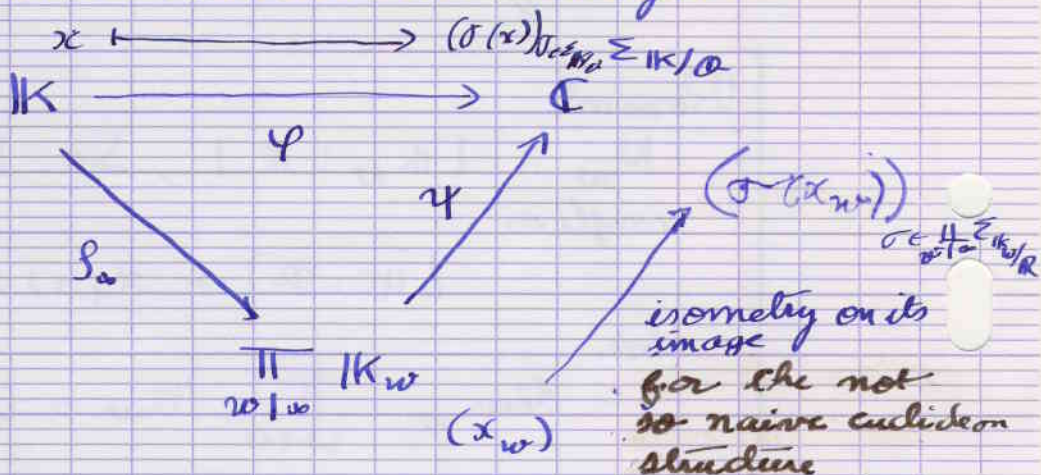 x ⟼ (σ(x))σ∈Σ𝕂/ℚ Σ𝕂/ℚ
𝕂 ⟶ ℂ
φ
ψ
(σ(x_w)) σ∈∐_{w|∞} Σ𝕂_w/ℝ
ρ_∞
isometry on its
image
∏_{w|∞} 𝕂_w
for the not
(x_w)
so naive euclidean
structure